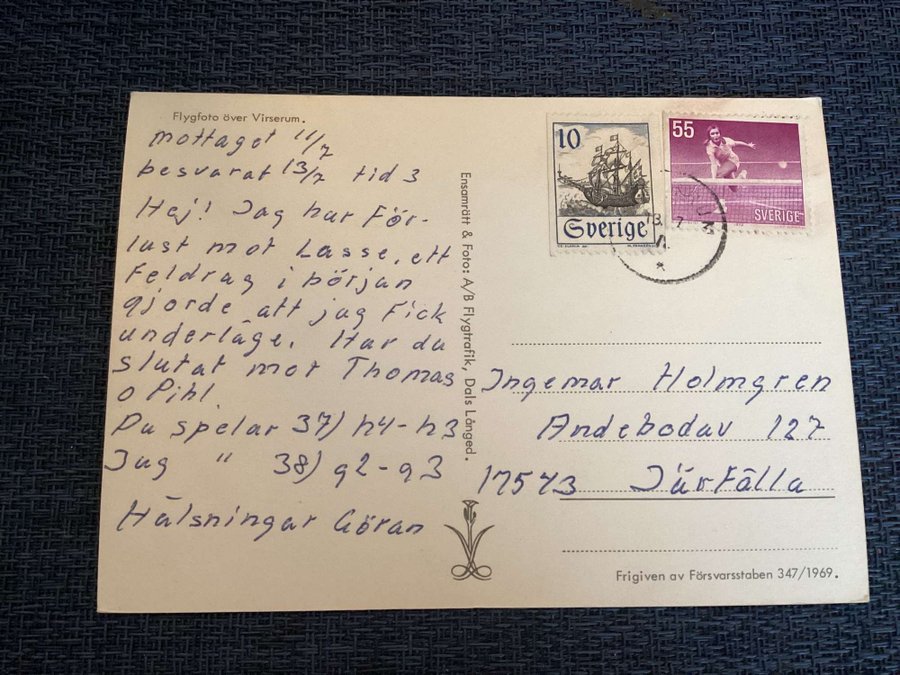 Flygfoto över Virserum.
mottaget 11/7
besvarat 13/7 tid 3
Hej! Jag har För-
lust mot Lasse, ett
Feldrag i början
gjorde att jag Fick
underläge. Har du
slutat mot Thomas
o Pihl
Du spelar 37) h4-h3
Jag " 38) g2-g3
Hälsningar Göran
Ensamrätt & Foto: A/B Flygtrafik, Dals Långed.
10
Sverige
55
SVERIGE
Ingemar Holmgren
Andebodav 127
17543 Järfälla
Frigiven av Försvarsstaben 347/1969.